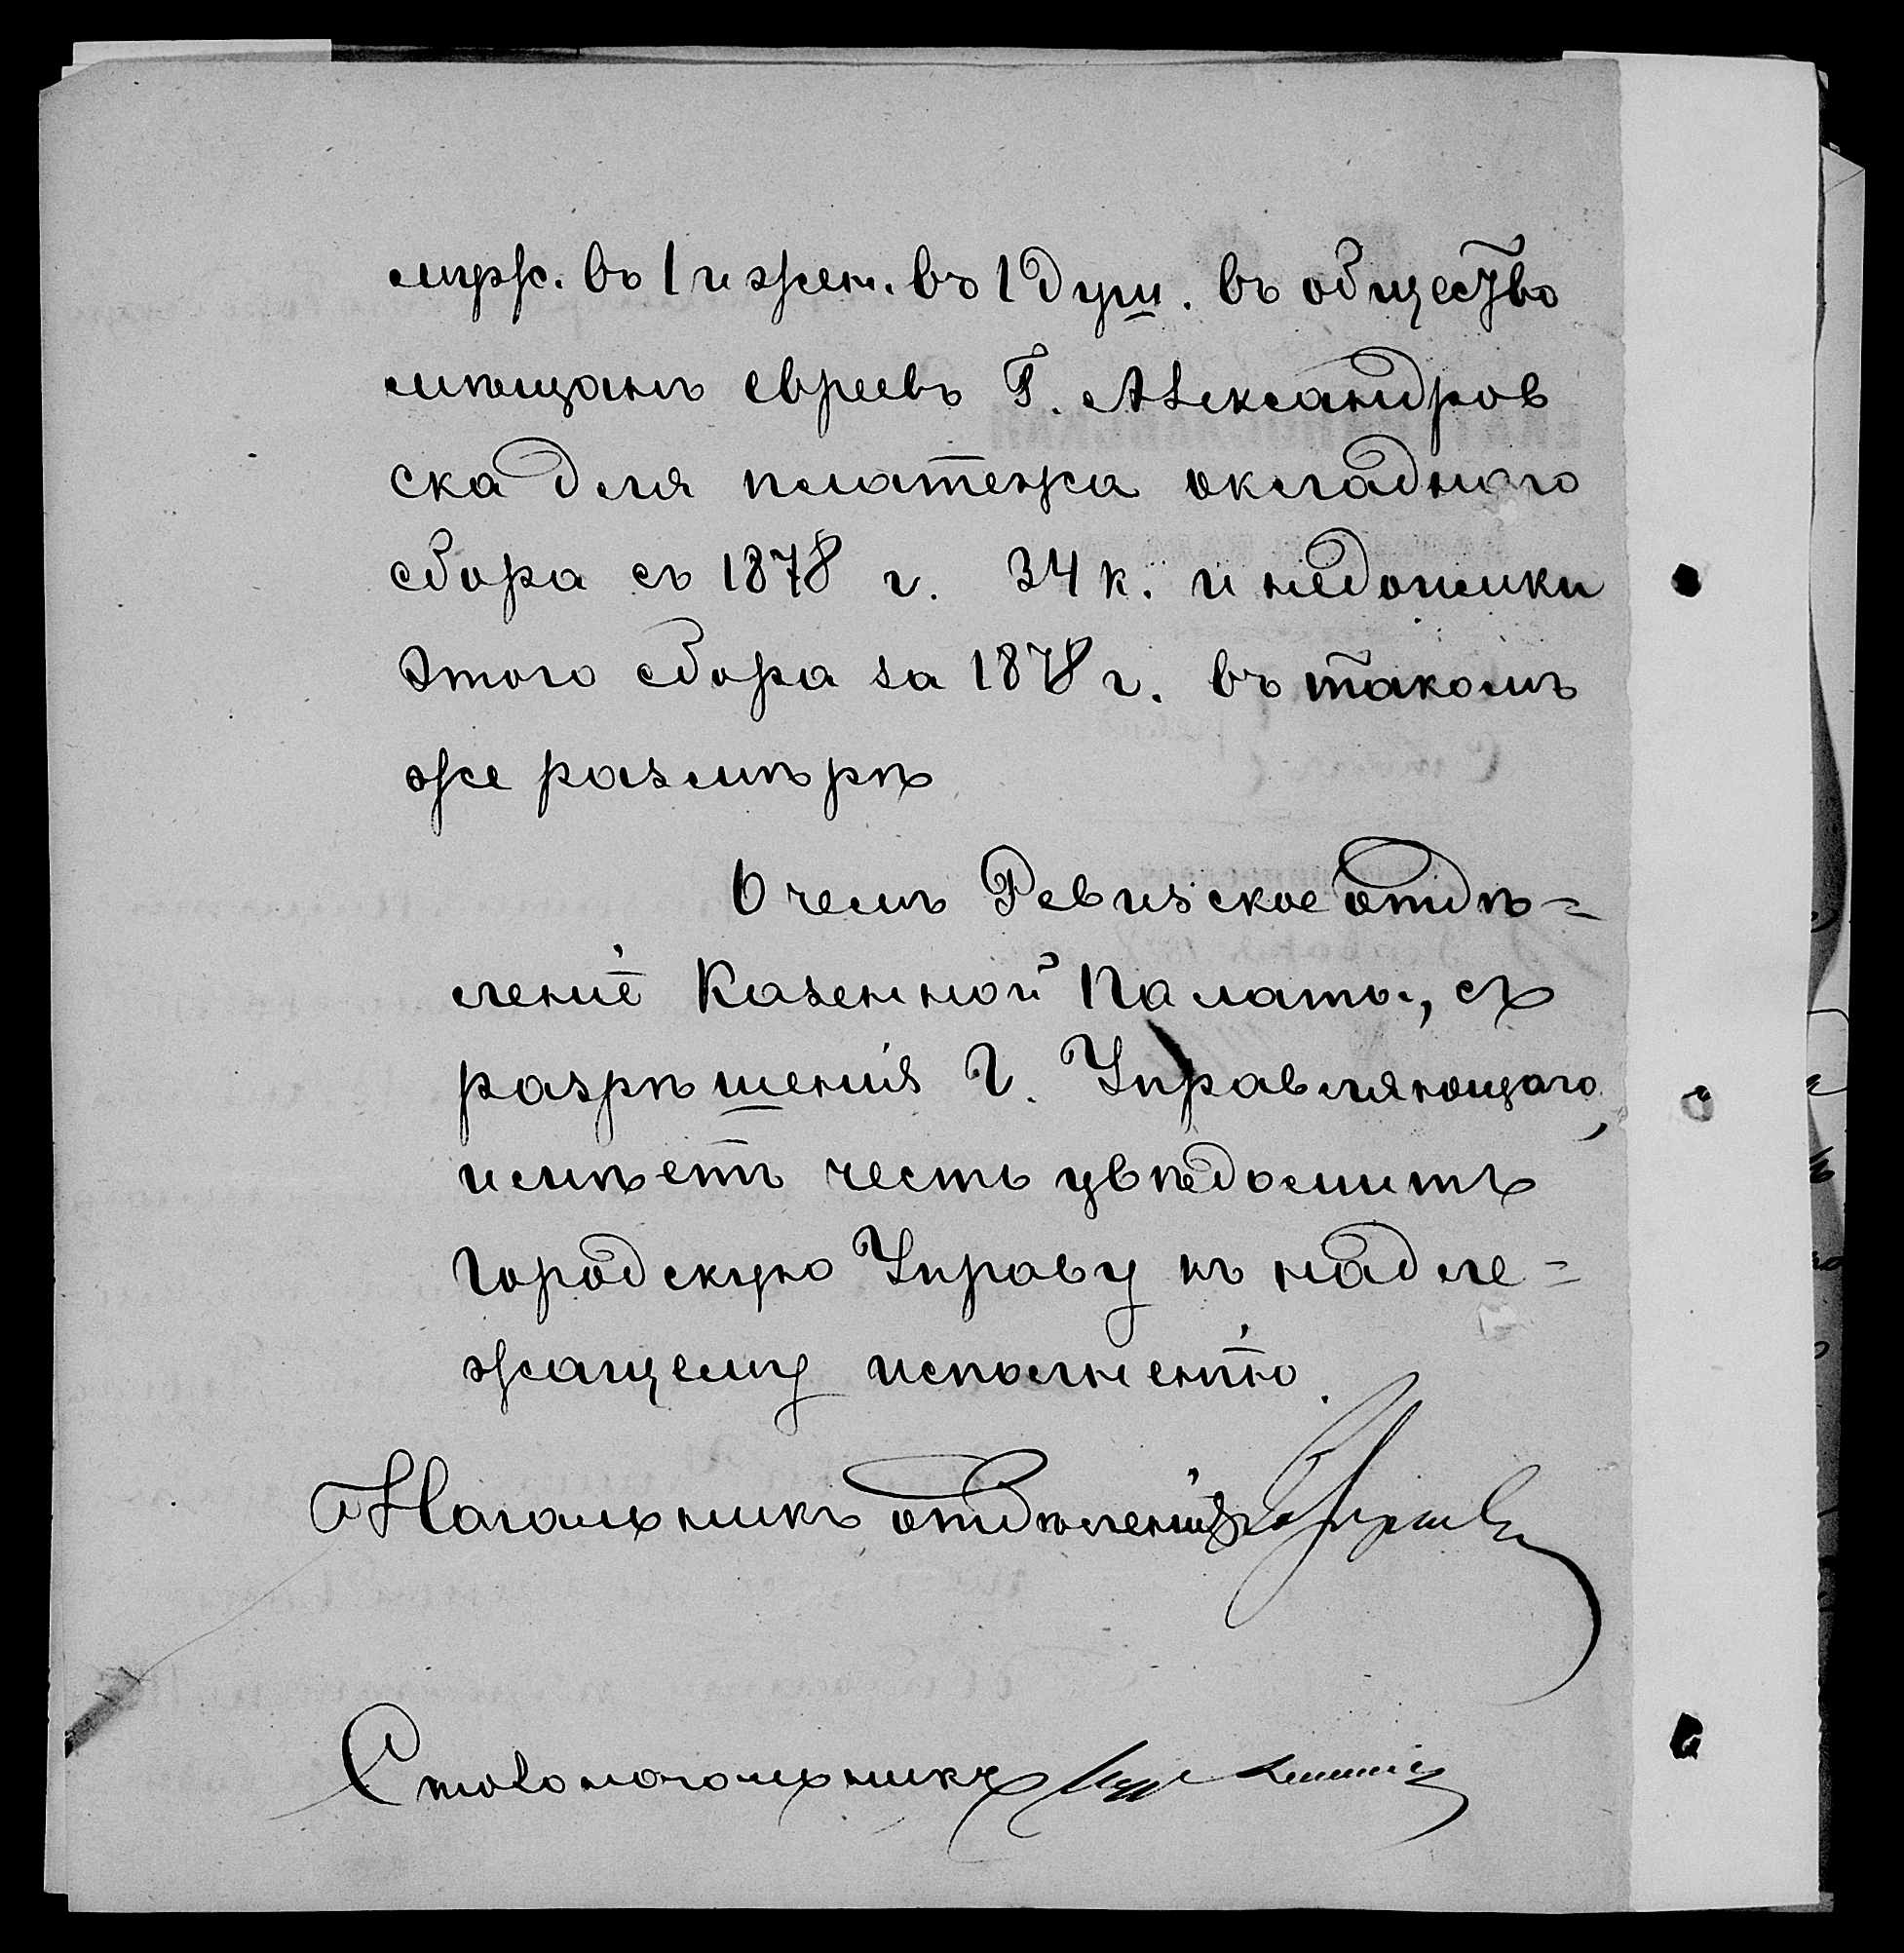 муж. въ 1 и жен. въ 1 душ. въ общество
мѣщанъ евреевъ Г. Александров
ска для платежа окладнаго
сбора съ 1878 г. 34 к. и недоимки
этого сбора за 1878 г. въ такомъ
же размѣрѣ
О чемъ Ревизское отдѣ=
леніе Казенной Палаты, съ
разрѣшенія Г. Управляющаго,
имѣетъ честь увѣдомить
Городскую Управу къ надле=
жащему исполненію.
Начальникъ отдѣленія
Столоначальникъ